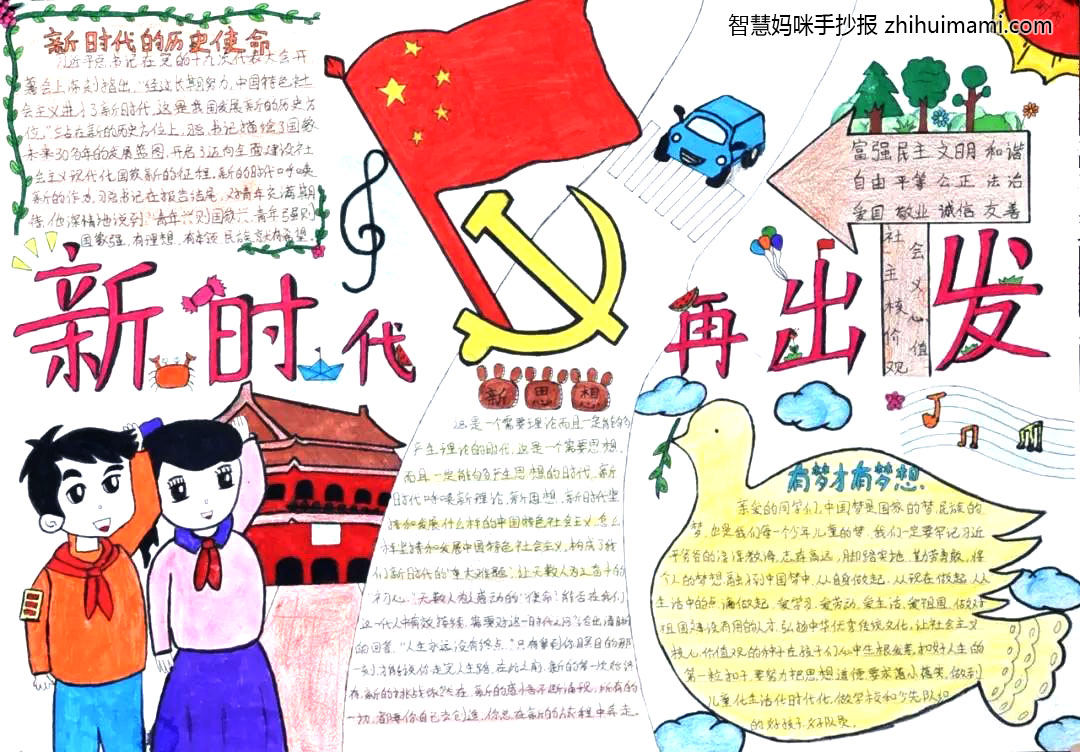 智慧妈咪手抄报 zhihuimami.com
新时代的历史使命
习近平总书记在党的十九次代表大会开
幕会上深刻指出，“经过长期努力，中国特色社
会主义进入了新时代，这是我国发展新的历史方
位。”站在新的历史方位上，习总书记描绘了国家
未来30多年的发展蓝图，开启了迈向全面建设社
会主义现代化国家新的征程，新的时代呼唤
新的作为，习总书记在报告结尾，对青年充满期
待，他深情地说到：青年兴则国家兴，青年强则
国家强，有理想，有本领，民族就大有希望。
富强 民主 文明 和谐
自由 平等 公正 法治
爱国 敬业 诚信 友善
社会主义核心价值观
新时代 再出发
新思想
这是一个需要理论而且一定能够
产生理论的时代，这是一个需要思想
而且一定能够产生思想的时代，新
时代呼唤新理论，新思想，新时代坚
持和发展什么样的中国特色社会主义，怎么
样坚持和发展中国特色社会主义，构成了我
们新时代的“重大难题”，让无数人为之奋斗的
初心，“无数人为之感动的”使命”能否在我们
这一代人中有效接续，需要对这一时代之问给出清晰
的回答。“人生永远没有终点。”只有等到你瞑目的那
一刻，才能说你走完人生路，在此之前，新的第一次你许
有，新的挑战依然在，新的感悟不断涌现，所有的
一切，都要你自己去创造，你总在新的旅程中奔走。
有梦才有梦想
亲爱的同学们，中国梦是国家的梦，民族的
梦，也是我们每一个少年儿童的梦，我们一定要牢记习近
平爷爷的谆谆教诲，志存高远，脚踏实地，勤劳勇敢，将
个人的梦想融入到中国梦中，从自身做起，从现在做起，从
生活中的点滴做起，爱学习，爱劳动，爱生活，爱祖国，做对
祖国建设有用的人才，弘扬中华优秀传统文化，让社会主义
核心价值观的种子在孩子们心中生根发芽，扣好人生的
第一粒扣子，要努力把思想道德要求落小落实，做到
儿童化生活化时代化，做学校和少先队员
的好孩子，好队员。